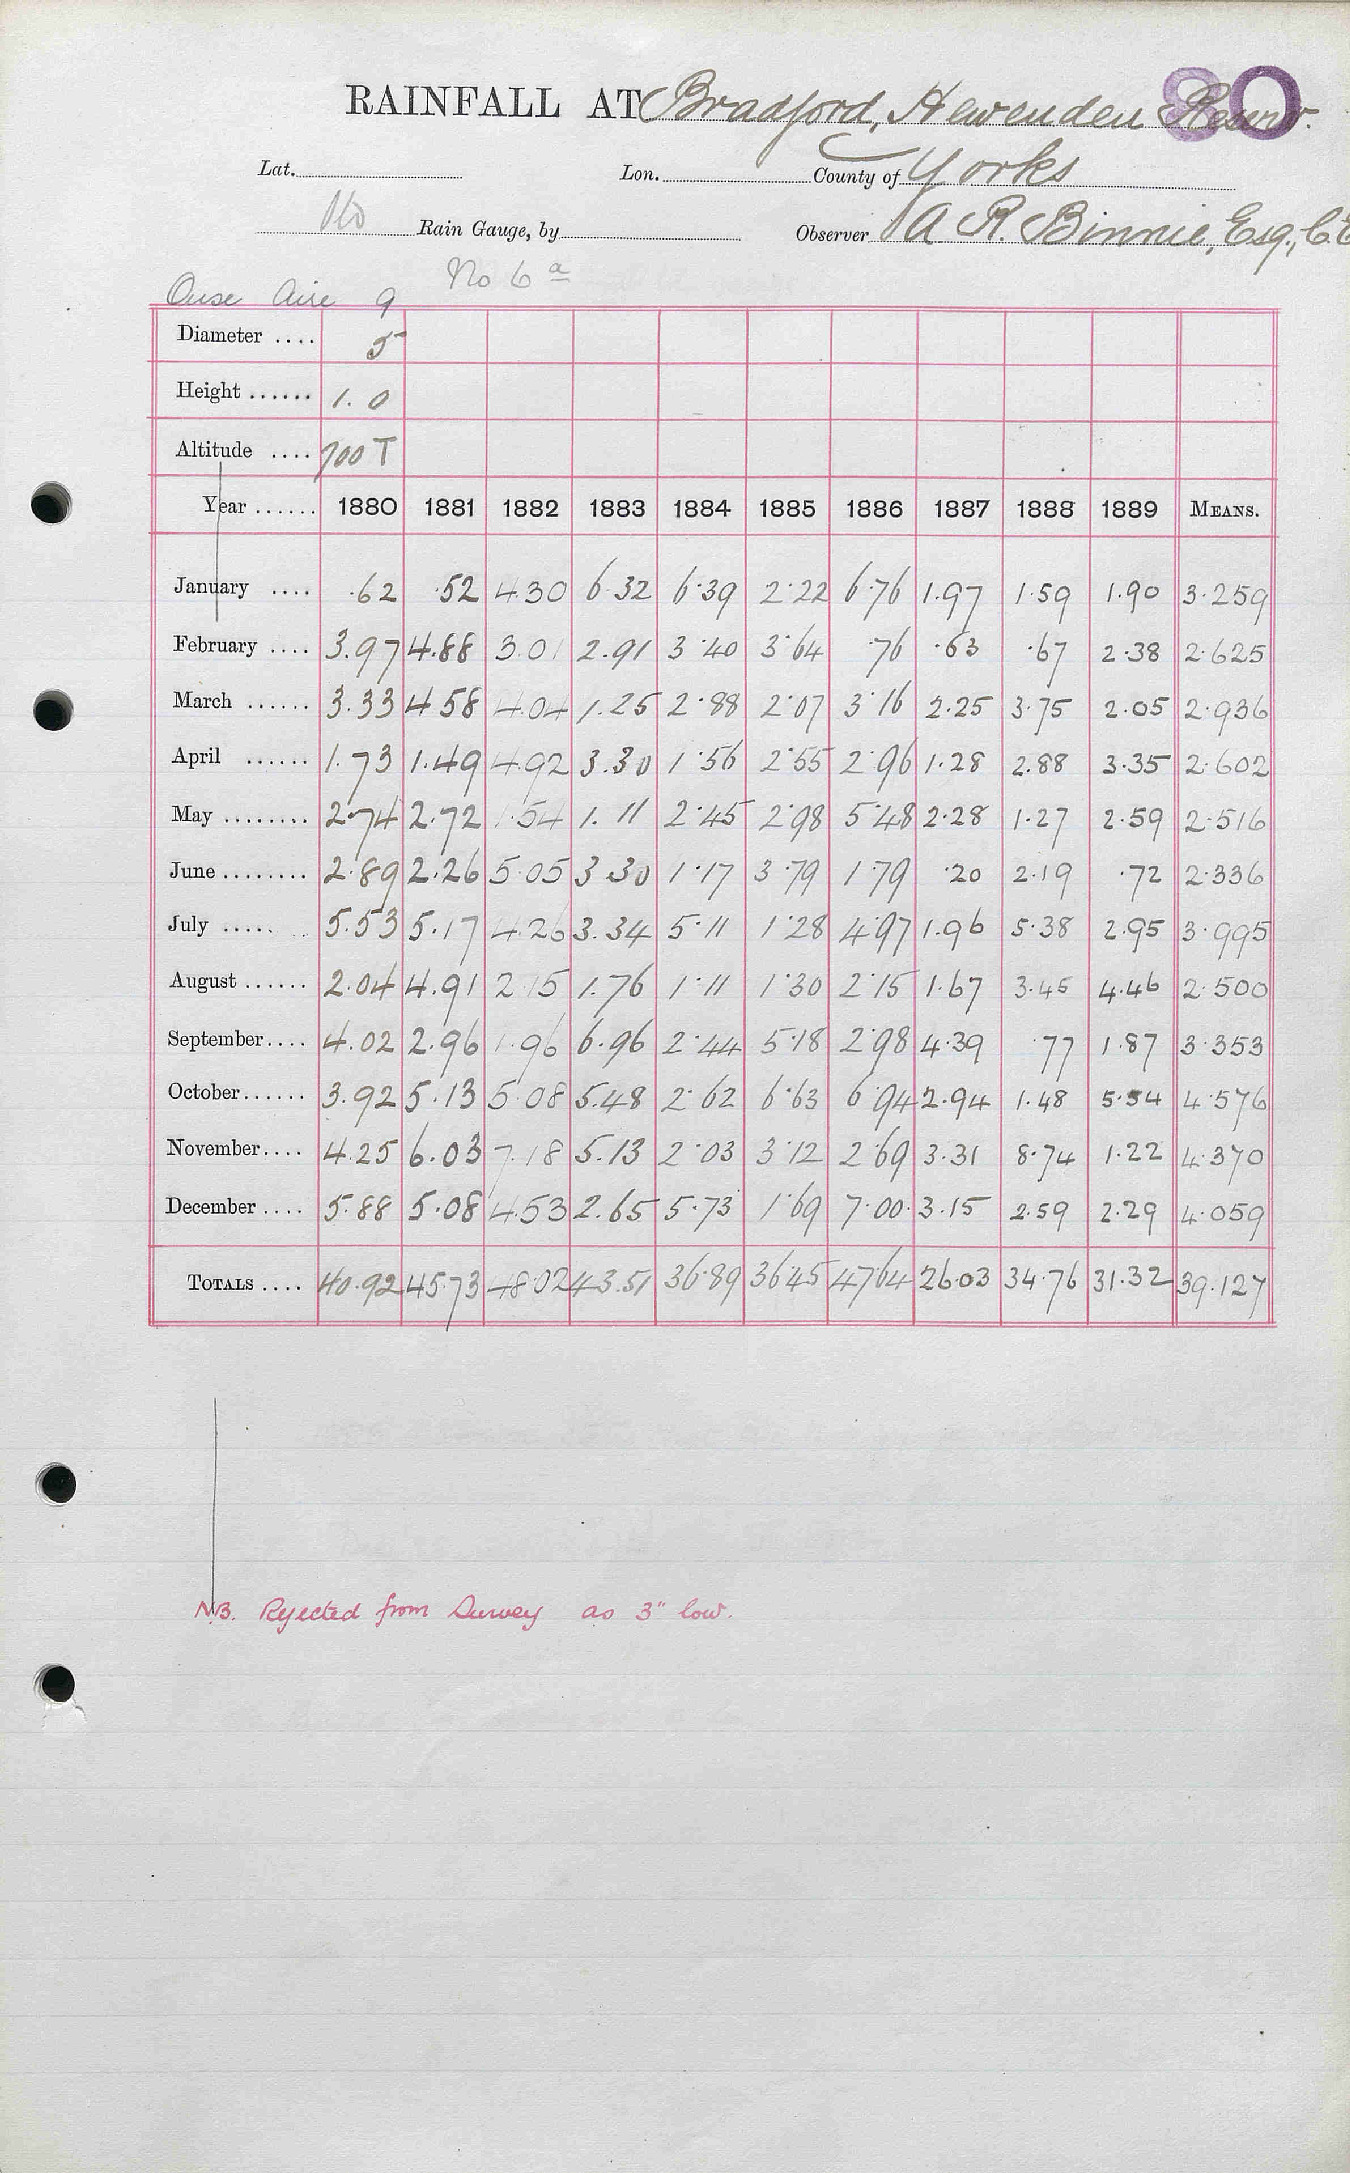 80
RAINFALL AT Bradford, Hewenden Reserv.
Lat. Lon. County of Yorks
Rain Gauge, by Observer A. R. Binnie, Esq., C.E
Ouse Aire 9 No 6 a
Diameter .... 5
Height ...... 1.0
Altitude .... 700 T
Year ...... 1880 1881 1882 1883 1884 1885 1886 1887 1888 1889 MEANS.
January .... .62 .52 4.30 6.32 6.39 2.22 6.76 1.97 1.59 1.90 3.259
February .... 3.97 4.88 3.01 2.91 3.40 3.64 .76 .63 .67 2.38 2.625
March ...... 3.33 4.58 4.04 1.25 2.88 2.07 3.16 2.25 3.75 2.05 2.936
April ...... 1.73 1.49 4.92 3.30 1.56 2.55 2.96 1.28 2.88 3.35 2.602
May ........ 2.74 2.72 1.54 1.11 2.45 2.98 5.48 2.28 1.27 2.59 2.516
June ........ 2.89 2.26 5.05 3.30 1.17 3.79 1.79 .20 2.19 .72 2.336
July ..... .. 5.53 5.17 4.26 3.34 5.11 1.28 4.97 1.96 5.38 2.95 3.995
August ...... 2.04 4.91 2.15 1.76 1.11 1.30 2.15 1.67 3.45 4.46 2.500
September.... 4.02 2.96 1.96 6.96 2.44 5.18 2.98 4.39 .77 1.87 3.353
October...... 3.92 5.13 5.08 5.48 2.62 6.63 6.94 2.94 1.48 5.54 4.576
November.... 4.25 6.03 7.18 5.13 2.03 3.12 2.69 3.31 8.74 1.22 4.370
December.... 5.88 5.08 4.53 2.65 5.73 1.69 7.00 3.15 2.59 2.29 4.059
TOTALS .... 40.92 45.73 48.02 43.51 36.89 36.45 47.64 26.03 34.76 31.32 39.127
NB. Rejected from Survey as 3" low.